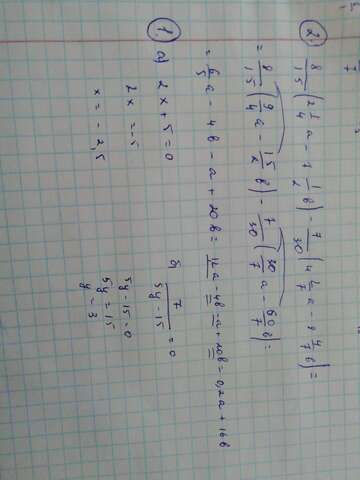 2.
8/15 (2 1/4 a - 7 1/2 b) - 7/30 (4 2/7 a - 8 4/7 b) =
= 8/15 (9/4 a - 15/2 b) - 7/30 (30/7 a - 60/7 b) =
= 6/5 a - 4b - a + 20b = 1,2a - 4b - a + 20b = 0,2a + 16b
1.
а) 2x + 5 = 0
2x = -5
x = -2,5
б) 7/(5y - 15) = 0
5y - 15 = 0
5y = 15
y = 3